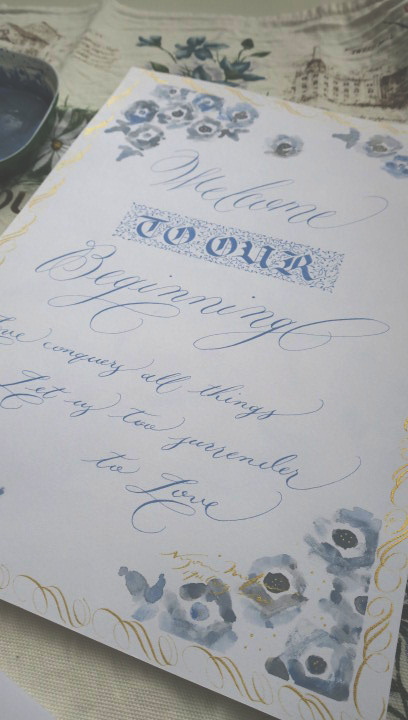 Welcome
TO OUR
Beginning
Love conquers all things
Let us too surrender
to Love